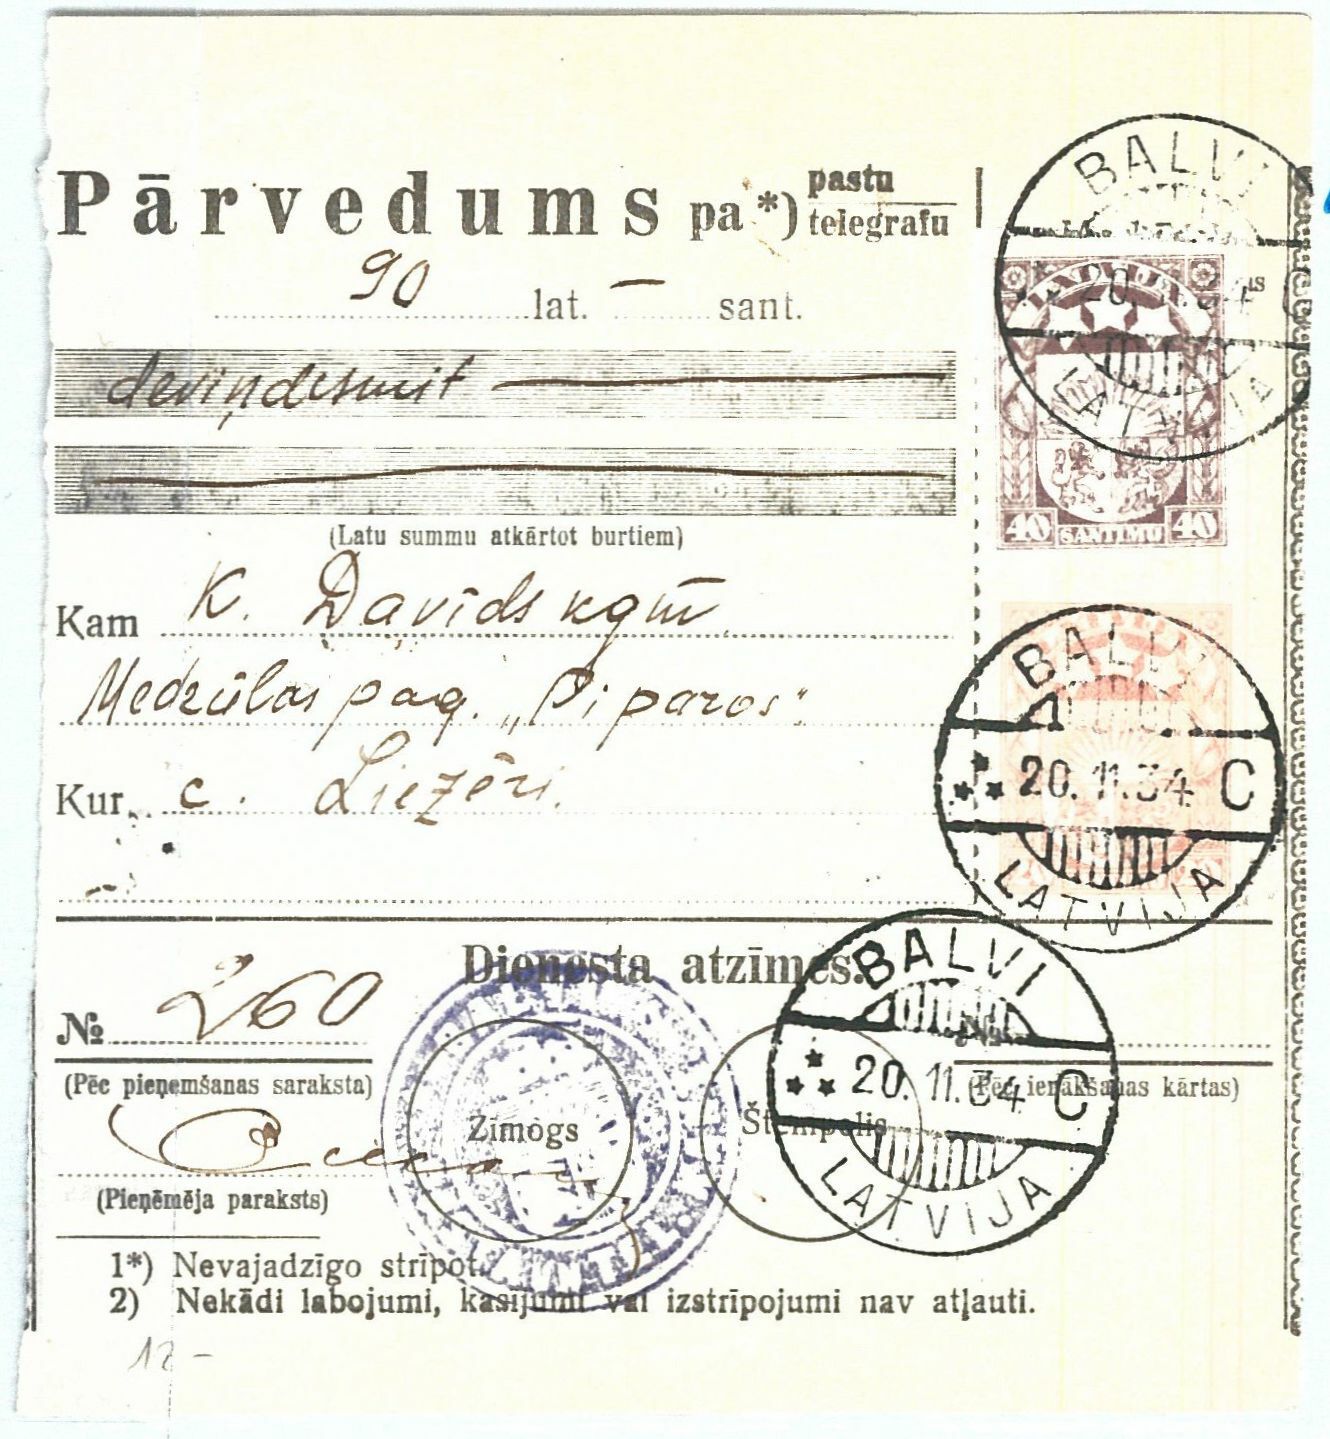 Pārvedums pa *) pastu
telegrafu
90 lat. — sant.
deviņdesmit
(Latu summu atkārtot burtiem)
Kam K. Davīds kgm
Medzūlas pag. „Piparos"
Kur c. Liezēri.
BALVI
20.11.34 C
LATVIJA
LATVIJA
40 SANTIMU 40
BALVI
20.11.34 C
LATVIJA
20 20
Dienesta atzīmes.
№ 260
№
(Pēc pieņemšanas saraksta)
(Pēc ienākšanas kārtas)
Zīmogs
Štempelis
BALVI
20.11.34 C
LATVIJA
(Pieņēmēja paraksts)
1*) Nevajadzīgo strīpot.
2) Nekādi labojumi, kasījumi vai izstrīpojumi nav atļauti.
12 –